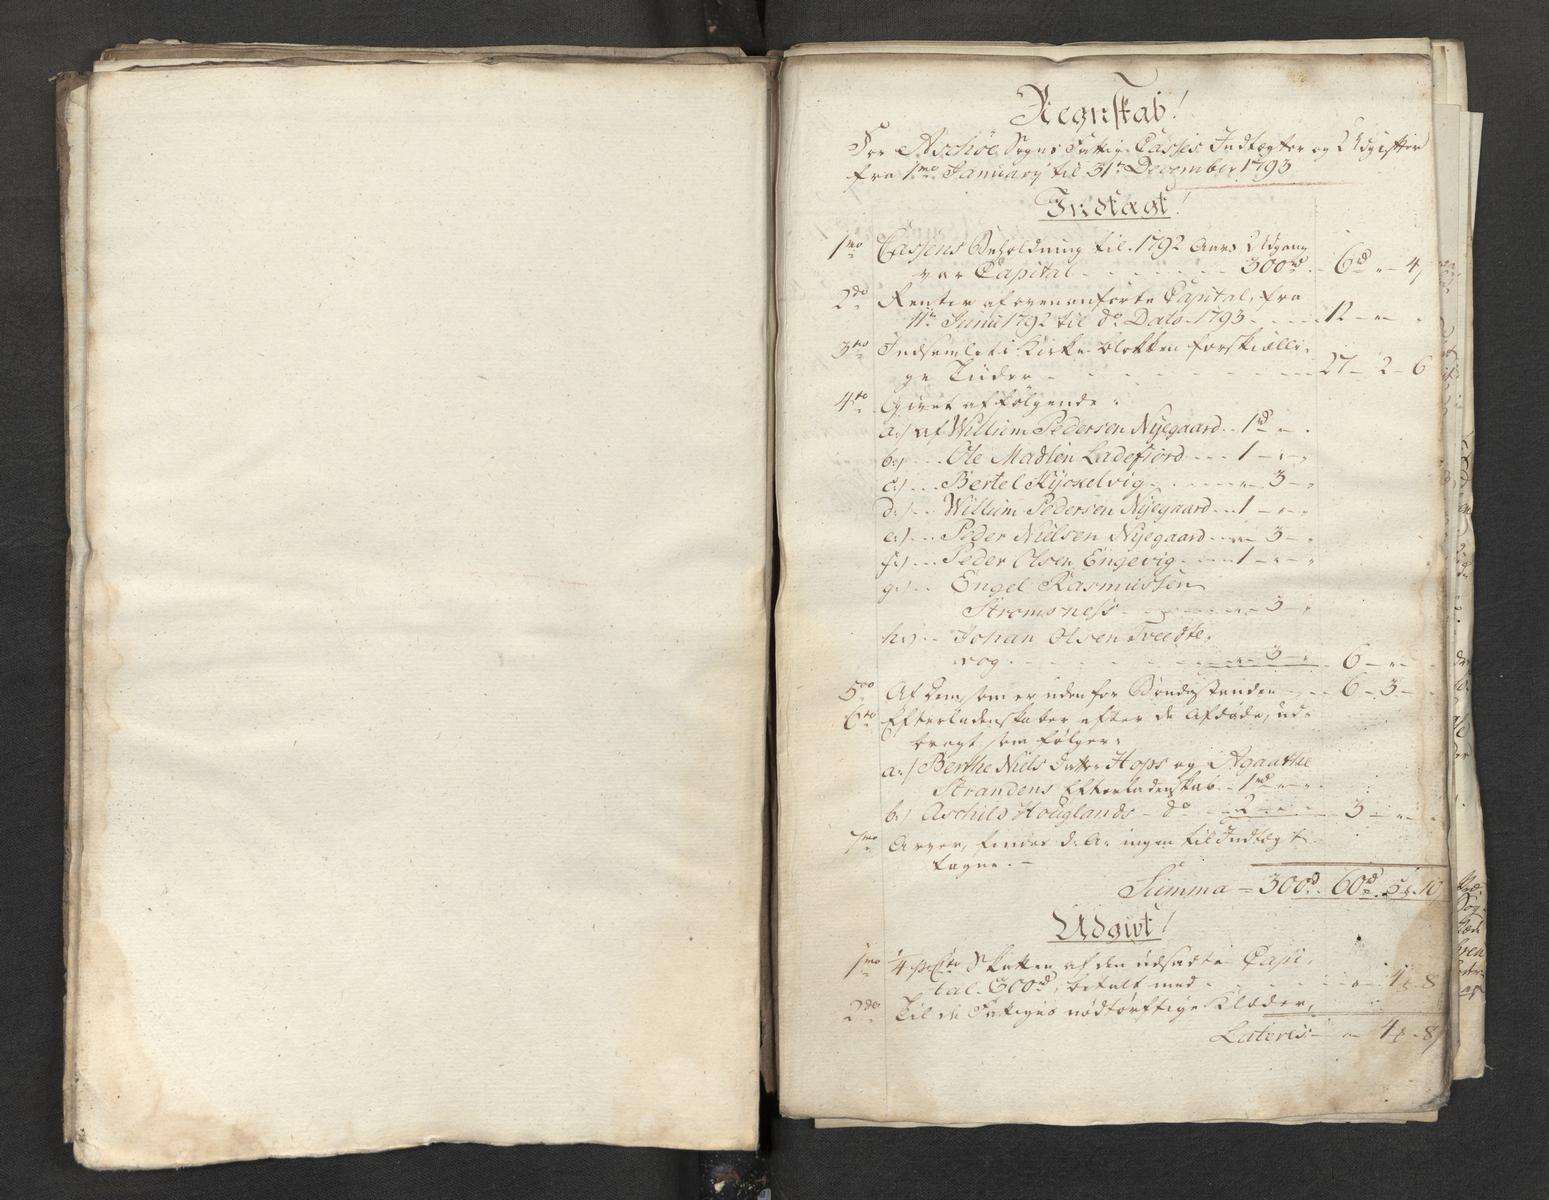 Regnskab!
For Aschøe Sogns Fattig-Casses Indtægter og Udgifter
fra 1mo January til 31te December 1793
Indtægt!
1mo Cassens Beholdning til 1792 Aars Udgang
var Capital - - - - 300rd - 6d " - 4
2do Renter af ovenanførte Capital, fra
11te Junii 1792 til do Dato 1793 - - - 12 - " -
3tio Indsamlet i Kirke-blokken forskiælli-
ge Tiider - - - - 27 - 2 - 6
4to Givet af følgende:
a:) af Willum Pedersen Nyegaard - 1d " -
b:) - - - Ole Madsen Ladefiord - - - 1 - " -
c:) - - - Bertel Kyckelvig - - - " - 3 -
d:) - - Willum Pedersen Nyegaard - - 1 - " -
e:) - - - Peder Nielsen Nyegaard - - - " - 3 -
f:) - - - Peder Olsen Engevig - - - 1 - " -
g:) - - Engel Rasmussen
Stromsness - - - " - 3 -
h:) - - Johan Olsen Tvedte-
rog - - - " - 3 - 6 - " -
5to Af dem, som er uden for Bondestanden - - - 6 - 3 -
6to Efterladenskaber efter de Afdøde, ud-
bragt som følger:
a:) Berthe Niels Datter Hops og Agaathe
Strandens Efterladenskab - 1rd " -
b:) Aschilds Houglands - do - 2 - " - 3 - " -
7mo Arver, findes d: A: ingen til Indtægt
tagne. -
Summa = 300d. 60d. 5 10
Udgivt!
1mo 1/4 pCto Skatten af den udsadte Capi-
tal 300d, betalt med - - - " - 4 - 8
2do Til de Fattiges nødtørftige Klæder,
Lateris - " - 4 - 8